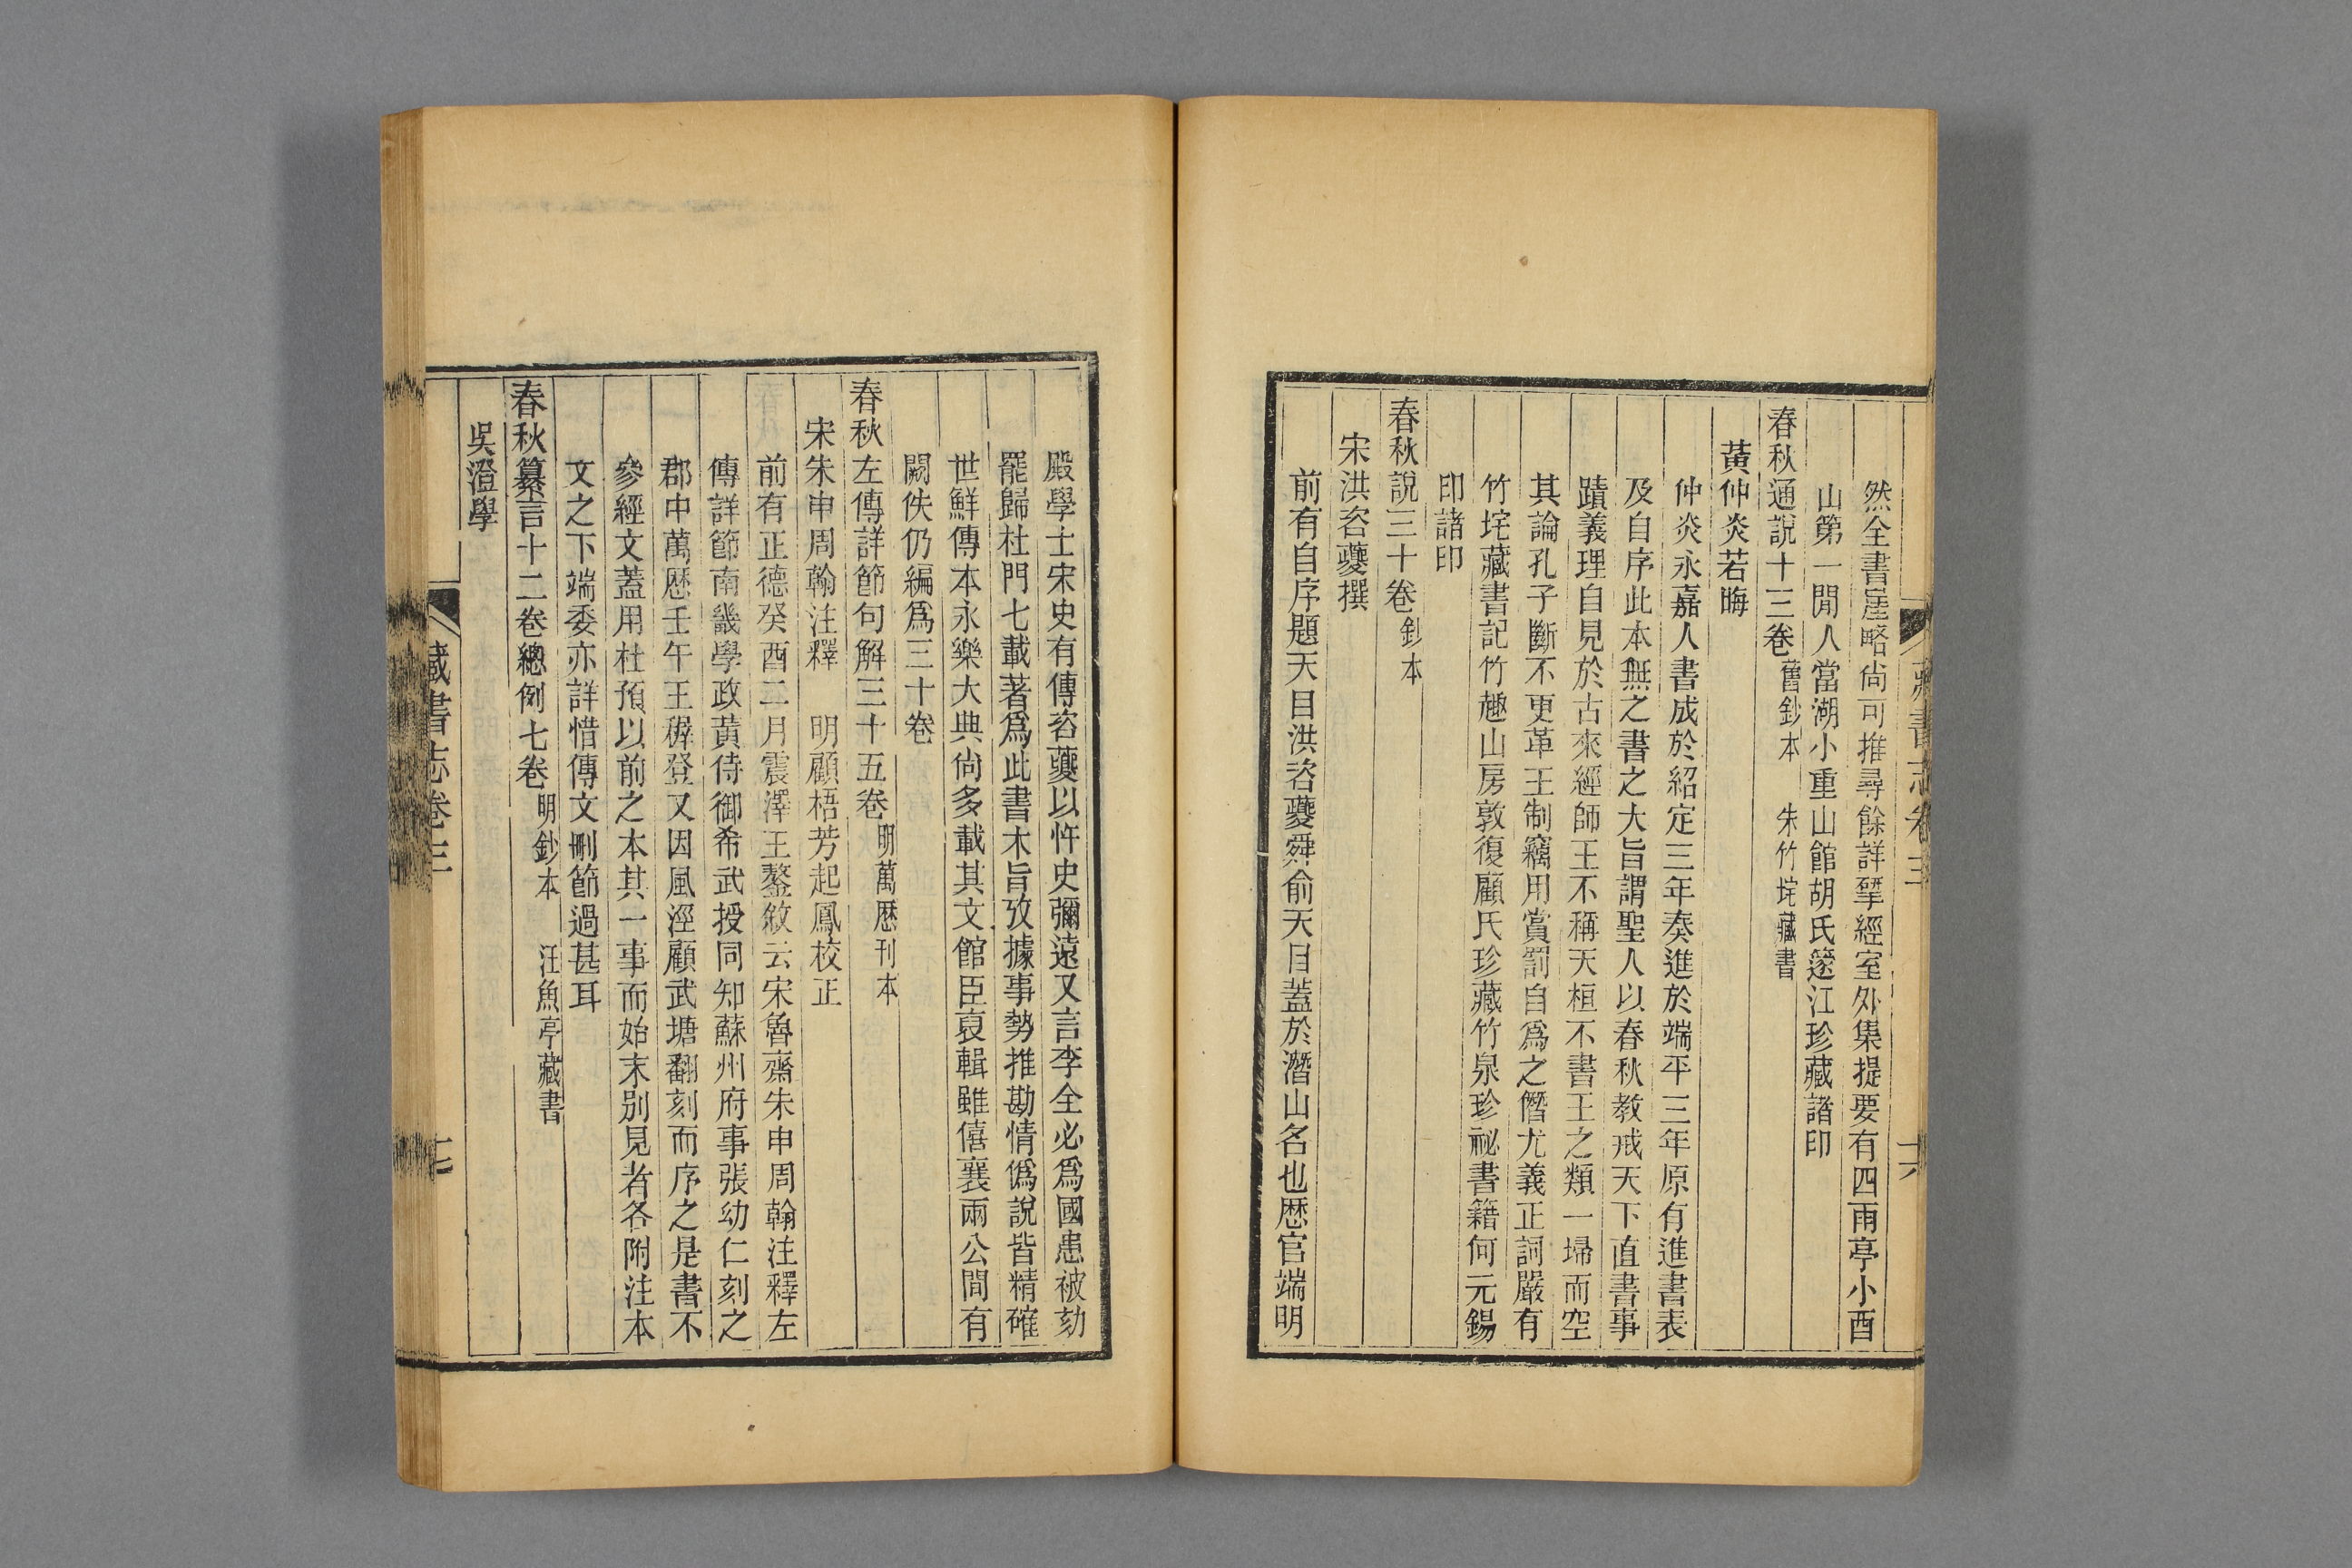 藏書志卷三
十六
然全書崖略尙可推尋餘詳揅經室外集提要有四雨亭小酉
山第一閒人當湖小重山館胡氏篴江珍藏諸印
春秋通說十三卷 舊鈔本 朱竹垞藏書
黃仲炎若晦
仲炎永嘉人書成於紹定三年奏進於端平三年原有進書表
及自序此本無之書之大旨謂聖人以春秋教戒天下直書事
蹟義理自見於古來經師王不稱天桓不書王之類一埽而空
其論孔子斷不更革王制竊用賞罰自爲之僭尤義正詞嚴有
竹垞藏書記竹趣山房敦復顧氏珍藏竹泉珍祕書籍何元錫
印諸印
春秋說三十卷 鈔本
宋洪咨夔撰
前有自序題天目洪咨夔舜俞天目蓋於潛山名也歷官端明
殿學士宋史有傳咨夔以忤史彌遠又言李全必爲國患被劾
罷歸杜門七載著爲此書木旨攷據事勢推勘情僞說皆精確
世鮮傳本永樂大典尙多載其文館臣裒輯雖僖襄兩公間有
闕佚仍編爲三十卷
春秋左傳詳節句解三十五卷 明萬歷刊本
宋朱申周翰注釋 明顧梧芳起鳳校正
前有正德癸酉二月震澤王鏊敘云宋魯齋朱申周翰注釋左
傳詳節南畿學政黃侍御希武授同知蘇州府事張幼仁刻之
郡中萬歷壬午王穉登又因風涇顧武塘翻刻而序之是書不
參經文蓋用杜預以前之本其一事而始末別見者各附注本
文之下端委亦詳惜傳文刪節過甚耳
春秋纂言十二卷總例七卷 明鈔本 汪魚亭藏書
吳澄學
藏書志卷三
十七